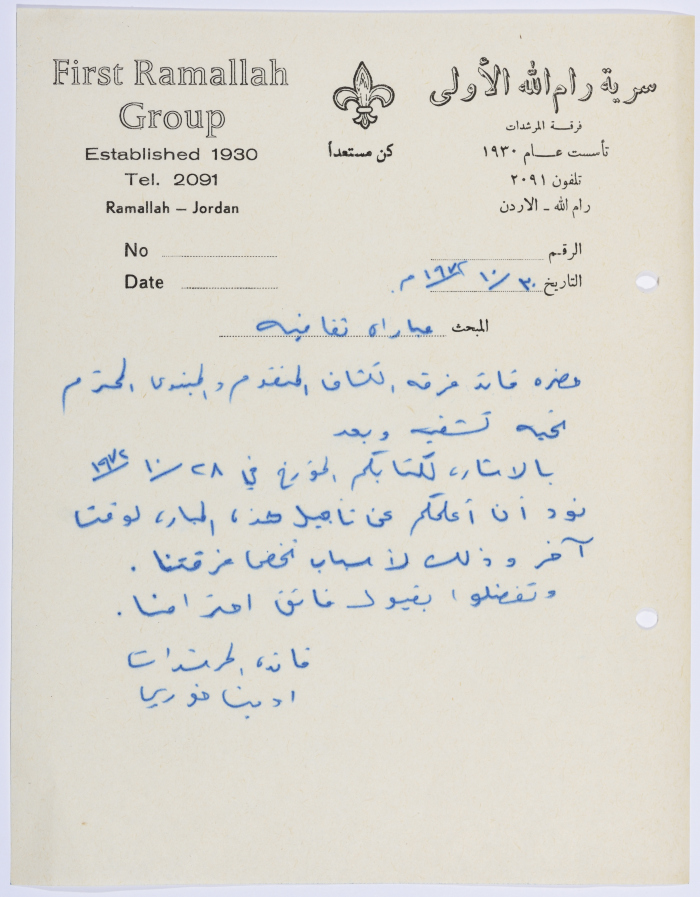 First Ramallah
Group
Established 1930
Tel. 2091
Ramallah – Jordan
كن مستعداً
سرية رام الله الأولى
فرقة المرشدات
تأسست عام ١٩٣٠
تلفون ٢٠٩١
رام الله - الاردن
No
Date
الرقم
التاريخ ٣٠/١٠/١٩٧٢ م.
المبحث مباراه ثقافيه
حضره قائد فرقه الكشاف المتقدم والمبتدئ المحترم
تحيه كشفيه وبعد
بالاشاره لكتابكم المؤرخ في ٢٨/١٠/١٩٧٢
نود أن أعلمكم عن تأجيل هذه المباراه لوقت
آخر وذلك لأسباب تخص فرقتنا.
وتفضلوا بقبول فائق احترامنا.
قائده المرشدات
خوري